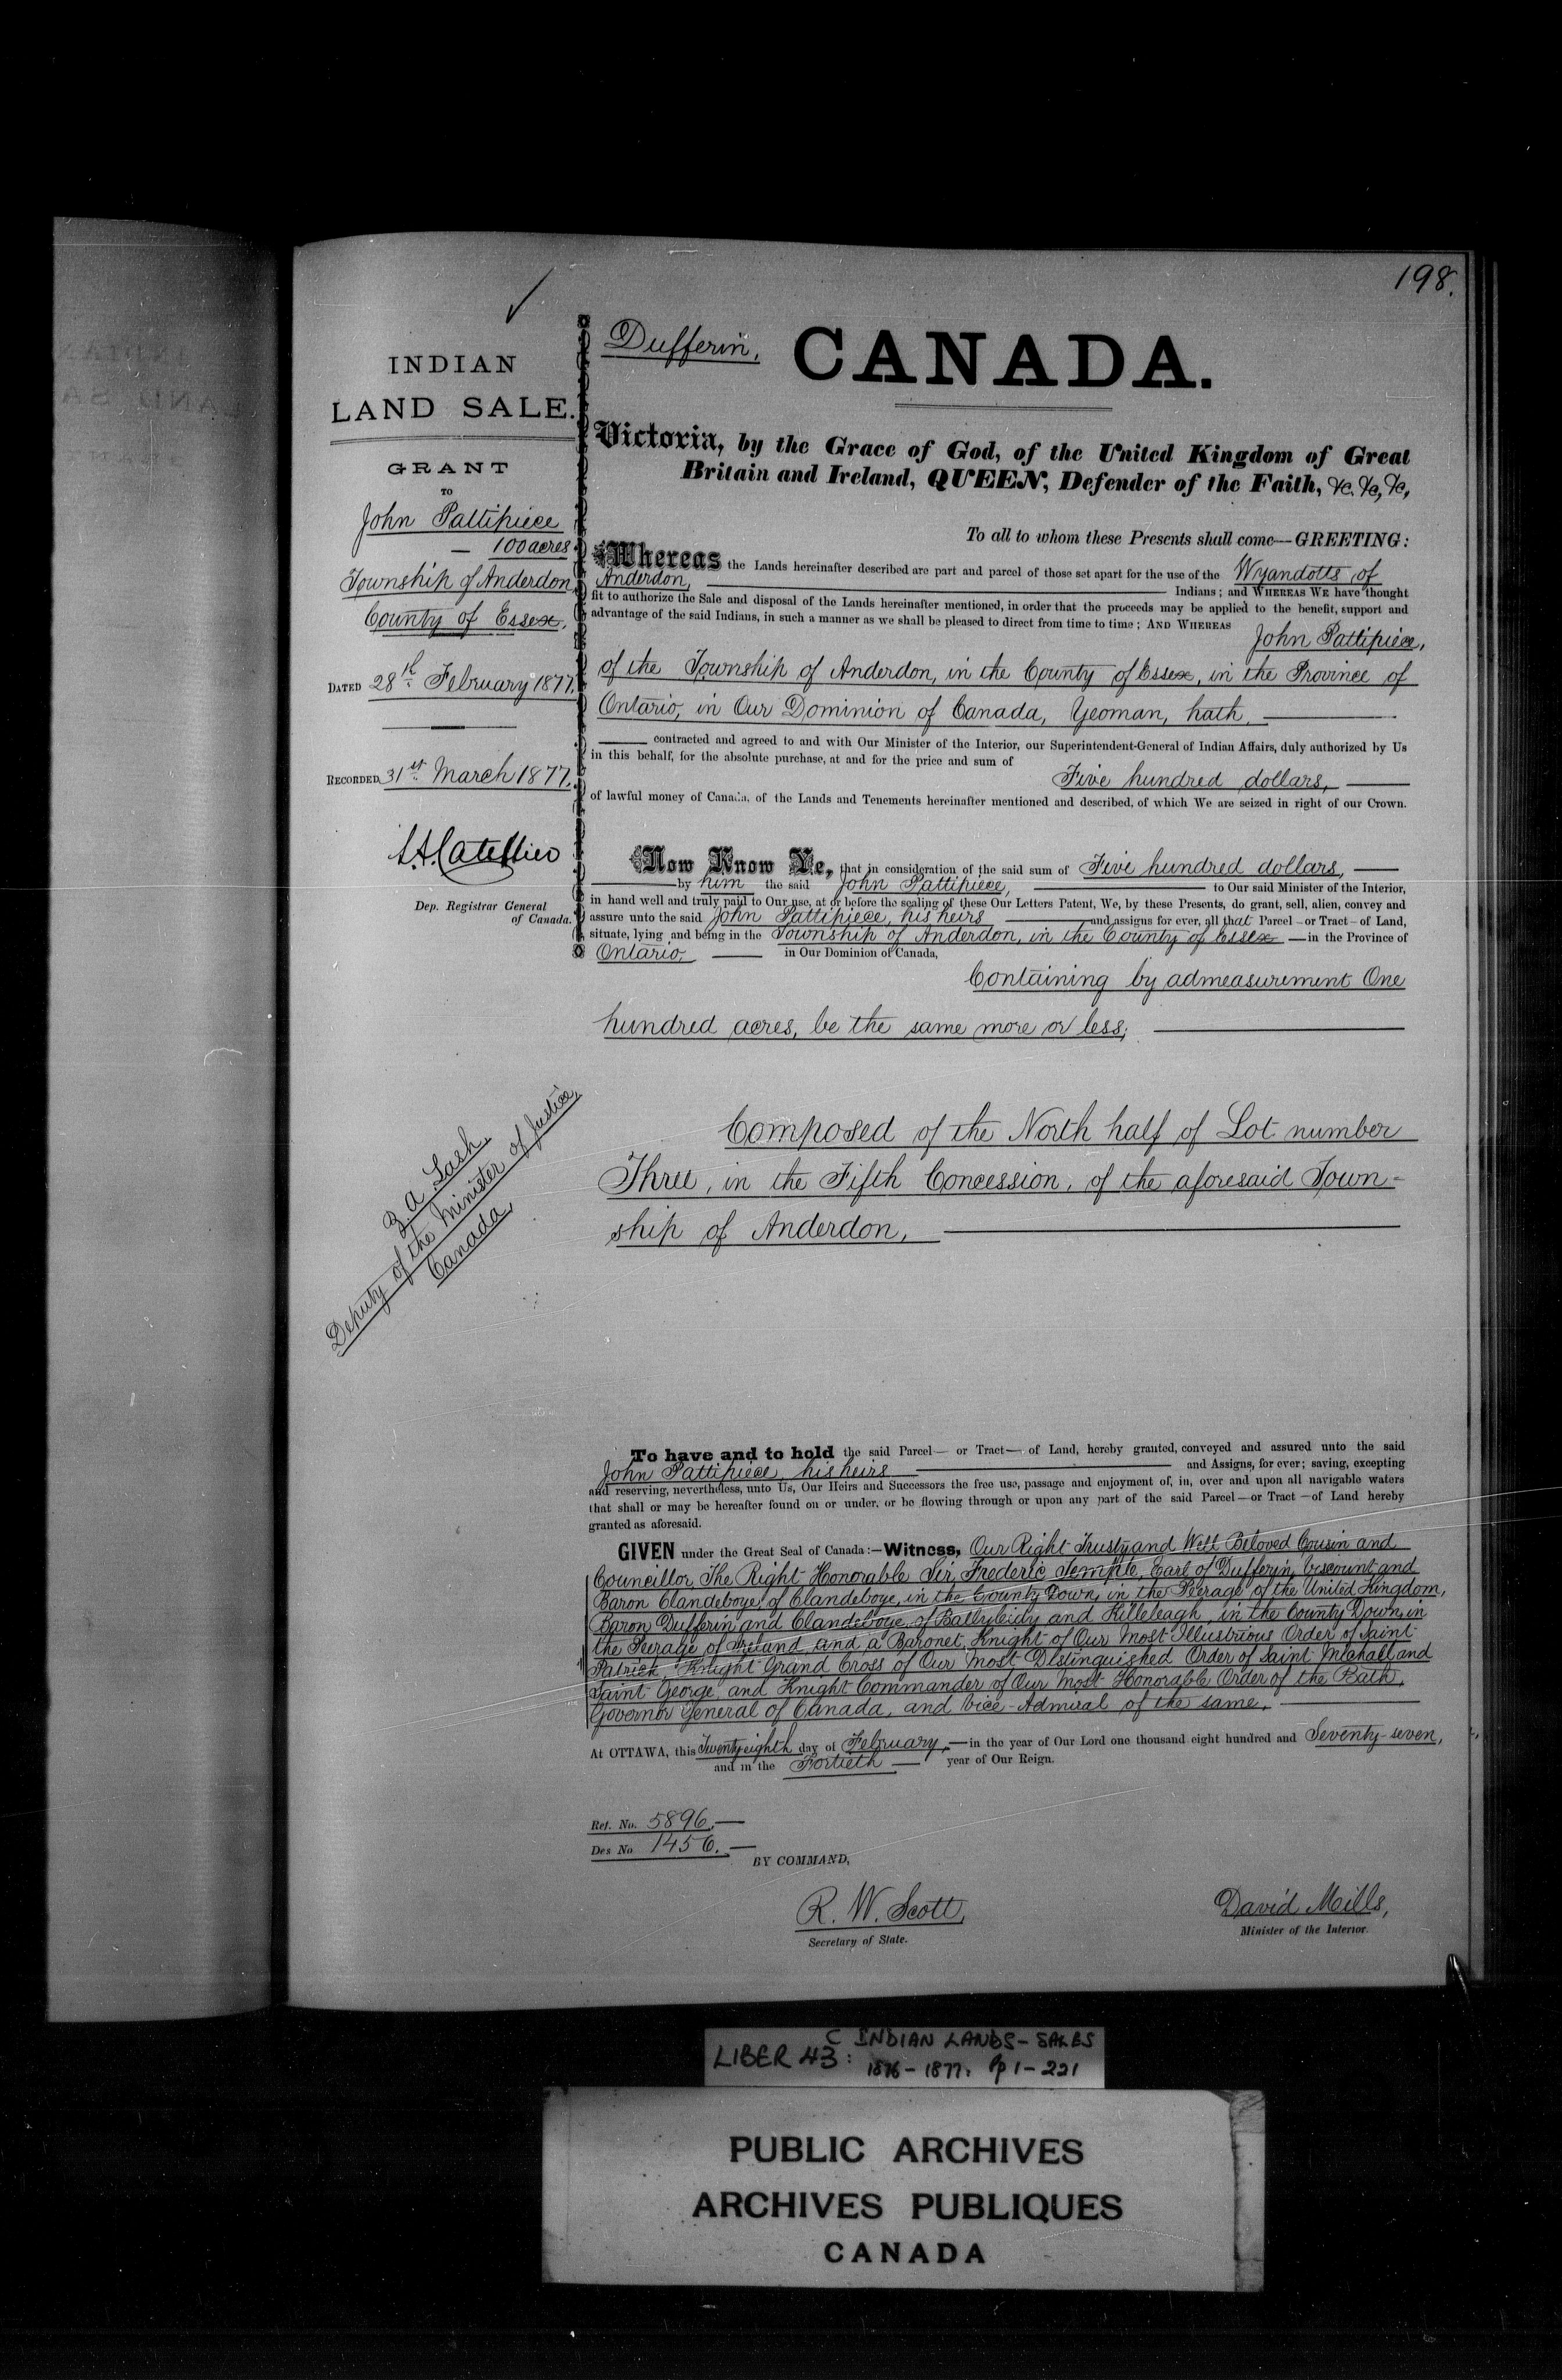 198.
INDIAN
LAND SALE.
GRANT
TO
John Pattipiece
— 100 acres
Township of Anderdon,
County of Essex,
DATED 28th February 1877.
RECORDED 31st March 1877.
Dep. Registrar General
of Canada.
Z. A. Lash,
Deputy of the Minister of Justice,
Canada,
Dufferin,
CANADA.
Victoria, by the Grace of God, of the United Kingdom of Great
Britain and Ireland, QUEEN, Defender of the Faith, &c, &c, &c,
To all to whom these Presents shall come—GREETING:
Whereas the Lands hereinafter described are part and parcel of those set apart for the use of the Wyandotts of
Anderdon, Indians; and WHEREAS WE have thought
fit to authorize the Sale and disposal of the Lands hereinafter mentioned, in order that the proceeds may be applied to the benefit, support and
advantage of the said Indians, in such a manner as we shall be pleased to direct from time to time; AND WHEREAS
John Pattipiece,
of the Township of Anderdon, in the County of Essex, in the Province of
Ontario, in Our Dominion of Canada, Yeoman, hath,
contracted and agreed to and with Our Minister of the Interior, our Superintendent-General of Indian Affairs, duly authorized by Us
in this behalf, for the absolute purchase, at and for the price and sum of
Five hundred dollars,
of lawful money of Canada, of the Lands and Tenements hereinafter mentioned and described, of which We are seized in right of our Crown.
Now Know Ye, that in consideration of the said sum of Five hundred dollars,
by him the said John Pattipiece, to Our said Minister of the Interior,
in hand well and truly paid to Our use, at or before the sealing of these Our Letters Patent, We, by these Presents, do grant, sell, alien, convey and
assure unto the said John Pattipiece, his heirs and assigns for ever, all that Parcel — or Tract — of Land,
situate, lying and being in the Township of Anderdon, in the County of Essex — in the Province of
Ontario, in Our Dominion of Canada,
Containing by admeasurement One
hundred acres, be the same more or less;
Composed of the North half of Lot number
Three, in the Fifth Concession, of the aforesaid Town-
ship of Anderdon,
To have and to hold the said Parcel — or Tract — of Land, hereby granted, conveyed and assured unto the said
John Pattipiece, his heirs and Assigns, for ever; saving, excepting
and reserving, nevertheless, unto Us, Our Heirs and Successors the free use, passage and enjoyment of, in, over and upon all navigable waters
that shall or may be hereafter found on or under, or be flowing through or upon any part of the said Parcel — or Tract — of Land hereby
granted as aforesaid.
GIVEN under the Great Seal of Canada:—Witness, Our Right Trusty and Well Beloved Cousin and
Councillor, The Right Honorable Sir Frederic Temple, Earl of Dufferin, Viscount and
Baron Clandeboye, of Clandeboye, in the County Down, in the Peerage of the United Kingdom,
Baron Dufferin and Clandeboye, of Ballyleidy and Killeleagh, in the County Down, in
the Peerage of Ireland, and a Baronet, Knight of Our Most Illustrious Order of Saint
Patrick, Knight Grand Cross of Our Most Distinguished Order of Saint Michall and
Saint George, and Knight Commander of Our Most Honorable Order of the Bath,
Governor General of Canada, and Vice-Admiral of the same,
At OTTAWA, this Twenty eighth day of February, — in the year of Our Lord one thousand eight hundred and Seventy-seven,
and in the Fortieth — year of Our Reign.
Ref. No. 5896.
Des No 1456.
BY COMMAND,
R. W. Scott,
Secretary of State.
David Mills,
Minister of the Interior.
LIBER 43C: INDIAN LANDS - SALES
1876 - 1877. Pp 1 - 221
PUBLIC ARCHIVES
ARCHIVES PUBLIQUES
CANADA